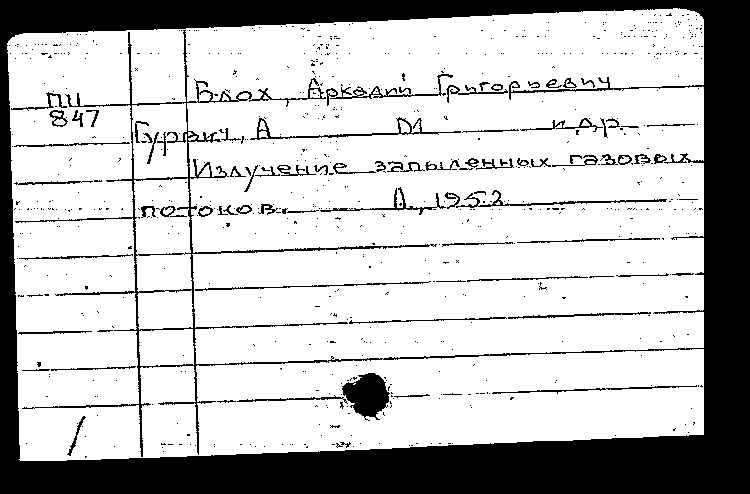 ПИ
847
Блох, Аркадий Григорьевич
Гурвич, А М и др.
Излучение запыленных газовых
потоков. Л., 1952